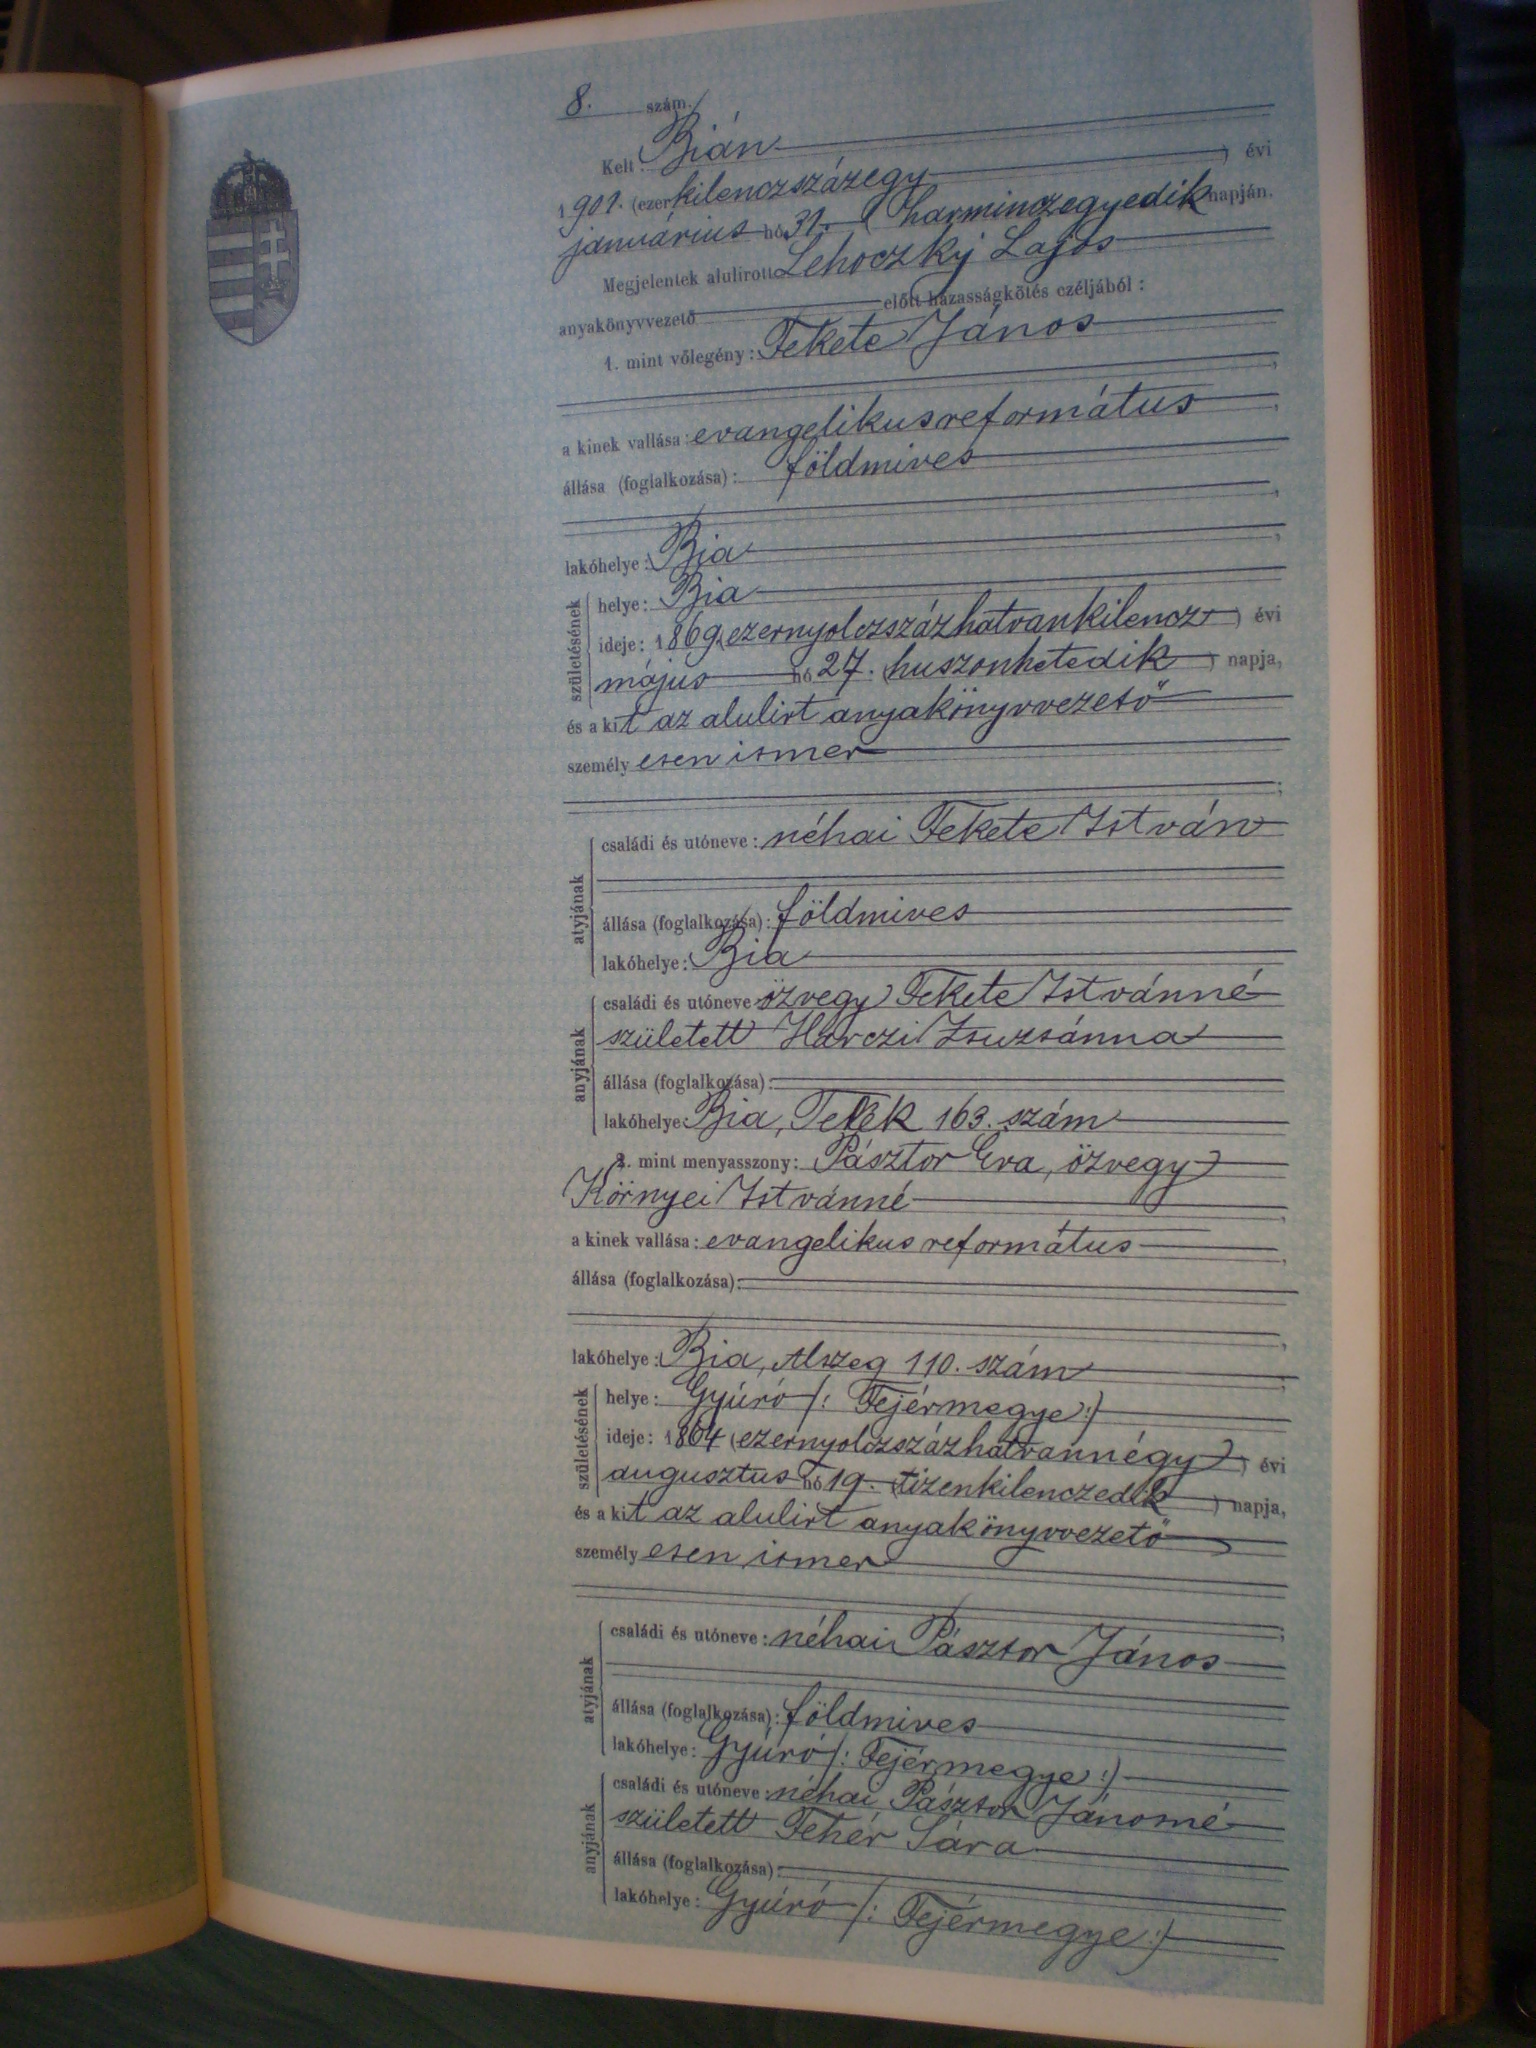 8. szám.
Kelt Bián
1901. (ezerkilenczszázegy ) évi
januárius hó 31. ( harminczegyedik napján.
Megjelentek alulirott Lehoczky Lajos
anyakönyvvezető előtt házasságkötés czéljából :
1. mint vőlegény : Fekete János
a kinek vallása : evangelikus református ,
állása (foglalkozása) : földmives
lakóhelye : Bia ,
születésének
helye : Bia
ideje : 1869 (ezernyolczszázhatvankilencz ) évi
május hó 27. (huszonhetedik ) napja,
és a kit az alulirt anyakönyvvezető
személyesen ismer
atyjának
családi és utóneve : néhai Fekete István
állása (foglalkozása) : földmives
lakóhelye : Bia
anyjának
családi és utóneve özvegy Fekete Istvánné
született Harczi Zsuzsánna
állása (foglalkozása) :
lakóhelye : Bia, Telek 163. szám
2. mint menyasszony : Pásztor Éva, özvegy
Környei Istvánné ,
a kinek vallása : evangelikus református ,
állása (foglalkozása) :
lakóhelye : Bia, Alszeg 110. szám ,
születésének
helye : Gyúró /: Fejérmegye :/
ideje : 1864 (ezernyolczszázhatvannégy ) évi
augusztus hó 19. (tizenkilenczedik ) napja,
és a kit az alulirt anyakönyvvezető
személyesen ismer
atyjának
családi és utóneve : néhai Pásztor János
állása (foglalkozása) : földmives
lakóhelye : Gyúró /: Fejérmegye :/
anyjának
családi és utóneve : néhai Pásztor Jánosné
született Fehér Sára
állása (foglalkozása) :
lakóhelye : Gyúró /: Fejérmegye :/